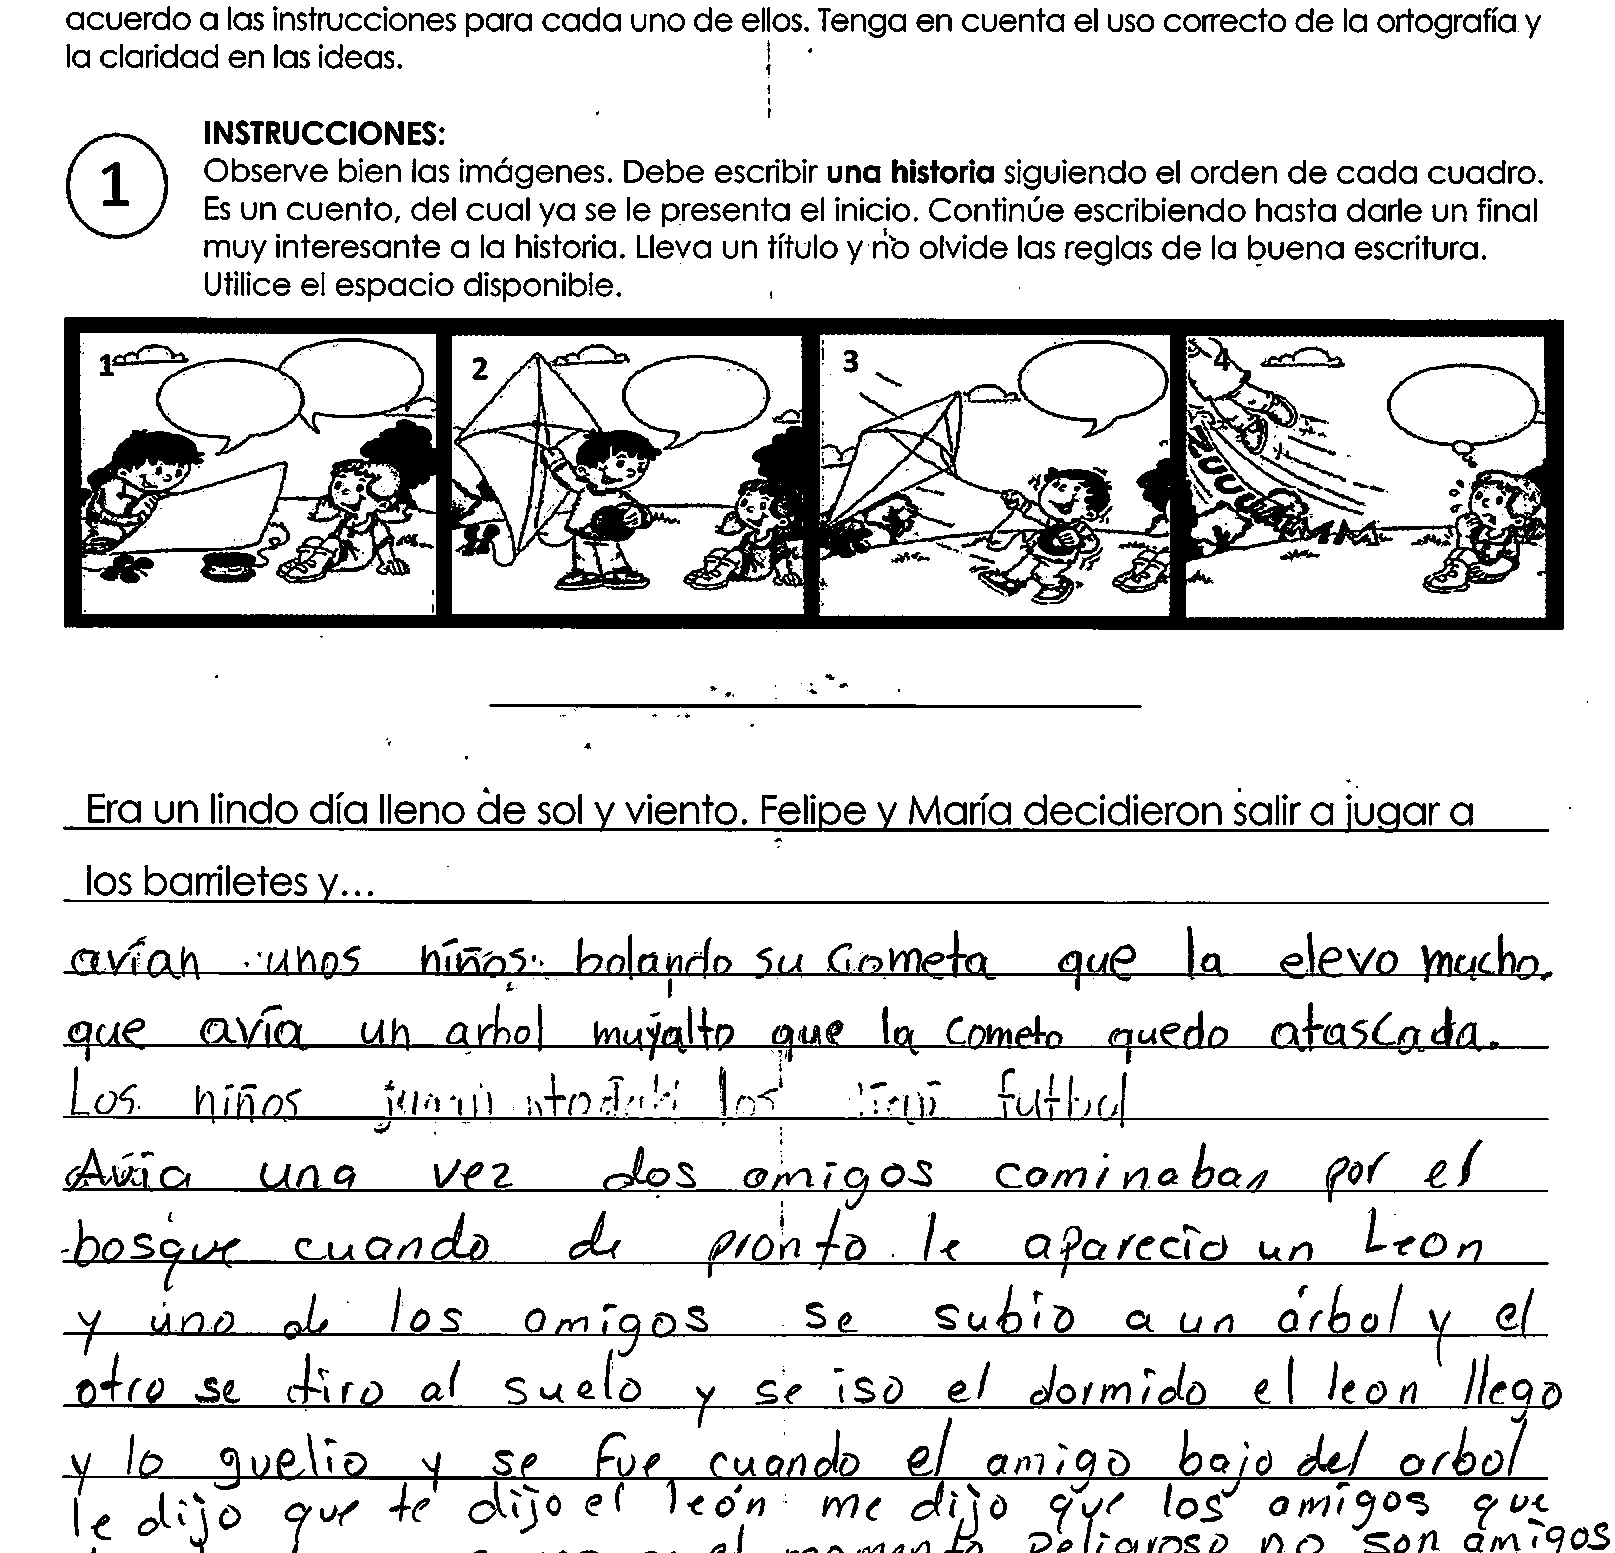 acuerdo a las instrucciones para cada uno de ellos. Tenga en cuenta el uso correcto de la ortografía y
la claridad en las ideas.
INSTRUCCIONES:
1
Observe bien las imágenes. Debe escribir una historia siguiendo el orden de cada cuadro.
Es un cuento, del cual ya se le presenta el inicio. Continúe escribiendo hasta darle un final
muy interesante a la historia. Lleva un título y no olvide las reglas de la buena escritura.
Utilice el espacio disponible.
1
2
3
4
Era un lindo día lleno de sol y viento. Felipe y María decidieron salir a jugar a
los barriletes y...
avían unos niños bolando su cometa que la elevo mucho.
que avía un arbol muy alto que la cometo quedo atascada.
Los niños los futbol
Avía una vez dos amigos caminaban por el
bosque cuando de pronto le aparecio un Leon
y uno de los amigos se subio a un árbol y el
otro se tiro al suelo y se iso el dormido el leon llego
y lo guelio y se fue cuando el amigo bajo del arbol
le dijo que te dijo el león me dijo que los amigos que
el momento peligroso no son amigos